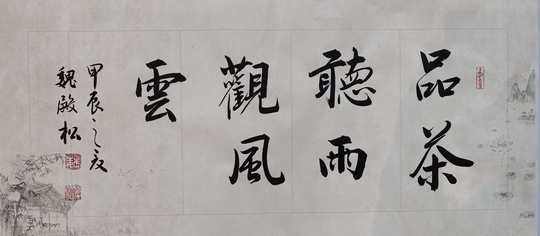 品茶
聽雨
觀風
雲
甲辰之夏
魏殿松